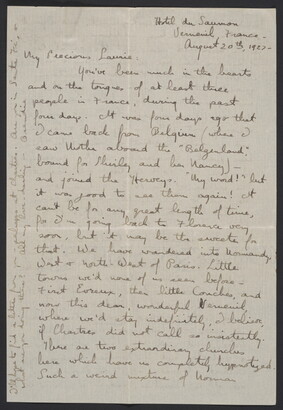 Hotel du Saumon
Verneuil, France.
August 20th, 1927-
My Precious Laurie.
You've been much in the hearts
and on the tongues of at least three
people in France, during the past
four days. It was four days ago that
I came back from Belgium (where I
saw Mother aboard the "Belgenland"
bound for Shirley and her Nancy) -
and joined the Herveys. "My word!" but
it was good to see them again! It
can't be for any great length of time,
for I'm going back to Florence very
soon, but it may be the sweeter for
that. We have wandered into Normandy,
West & north-West of Paris. Little
towns we'd none of us seen before -
First Evreux, then little Conches, and
now this dear, wonderful Verneuil
where we'd stay indefinitely, I believe
if Chartres did not call so insistently.
There are two extraordinary churches
here which have us completely hypnotized.
Such a weird mixture of Norman